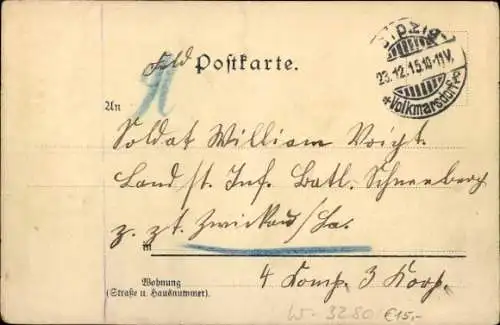 Leipzig-
23.12.15.10-11V.
*Volkmarsdorf*
Feld Postkarte.
An
Soldat William Voigt.
Land st. Inf. Batl. Schneeberg
z. zt. Zwickau/Sa.
in
4 Komp. 3 Korp.
Wohnung
(Straße u. Hausnummer).
W-3280 €15,-